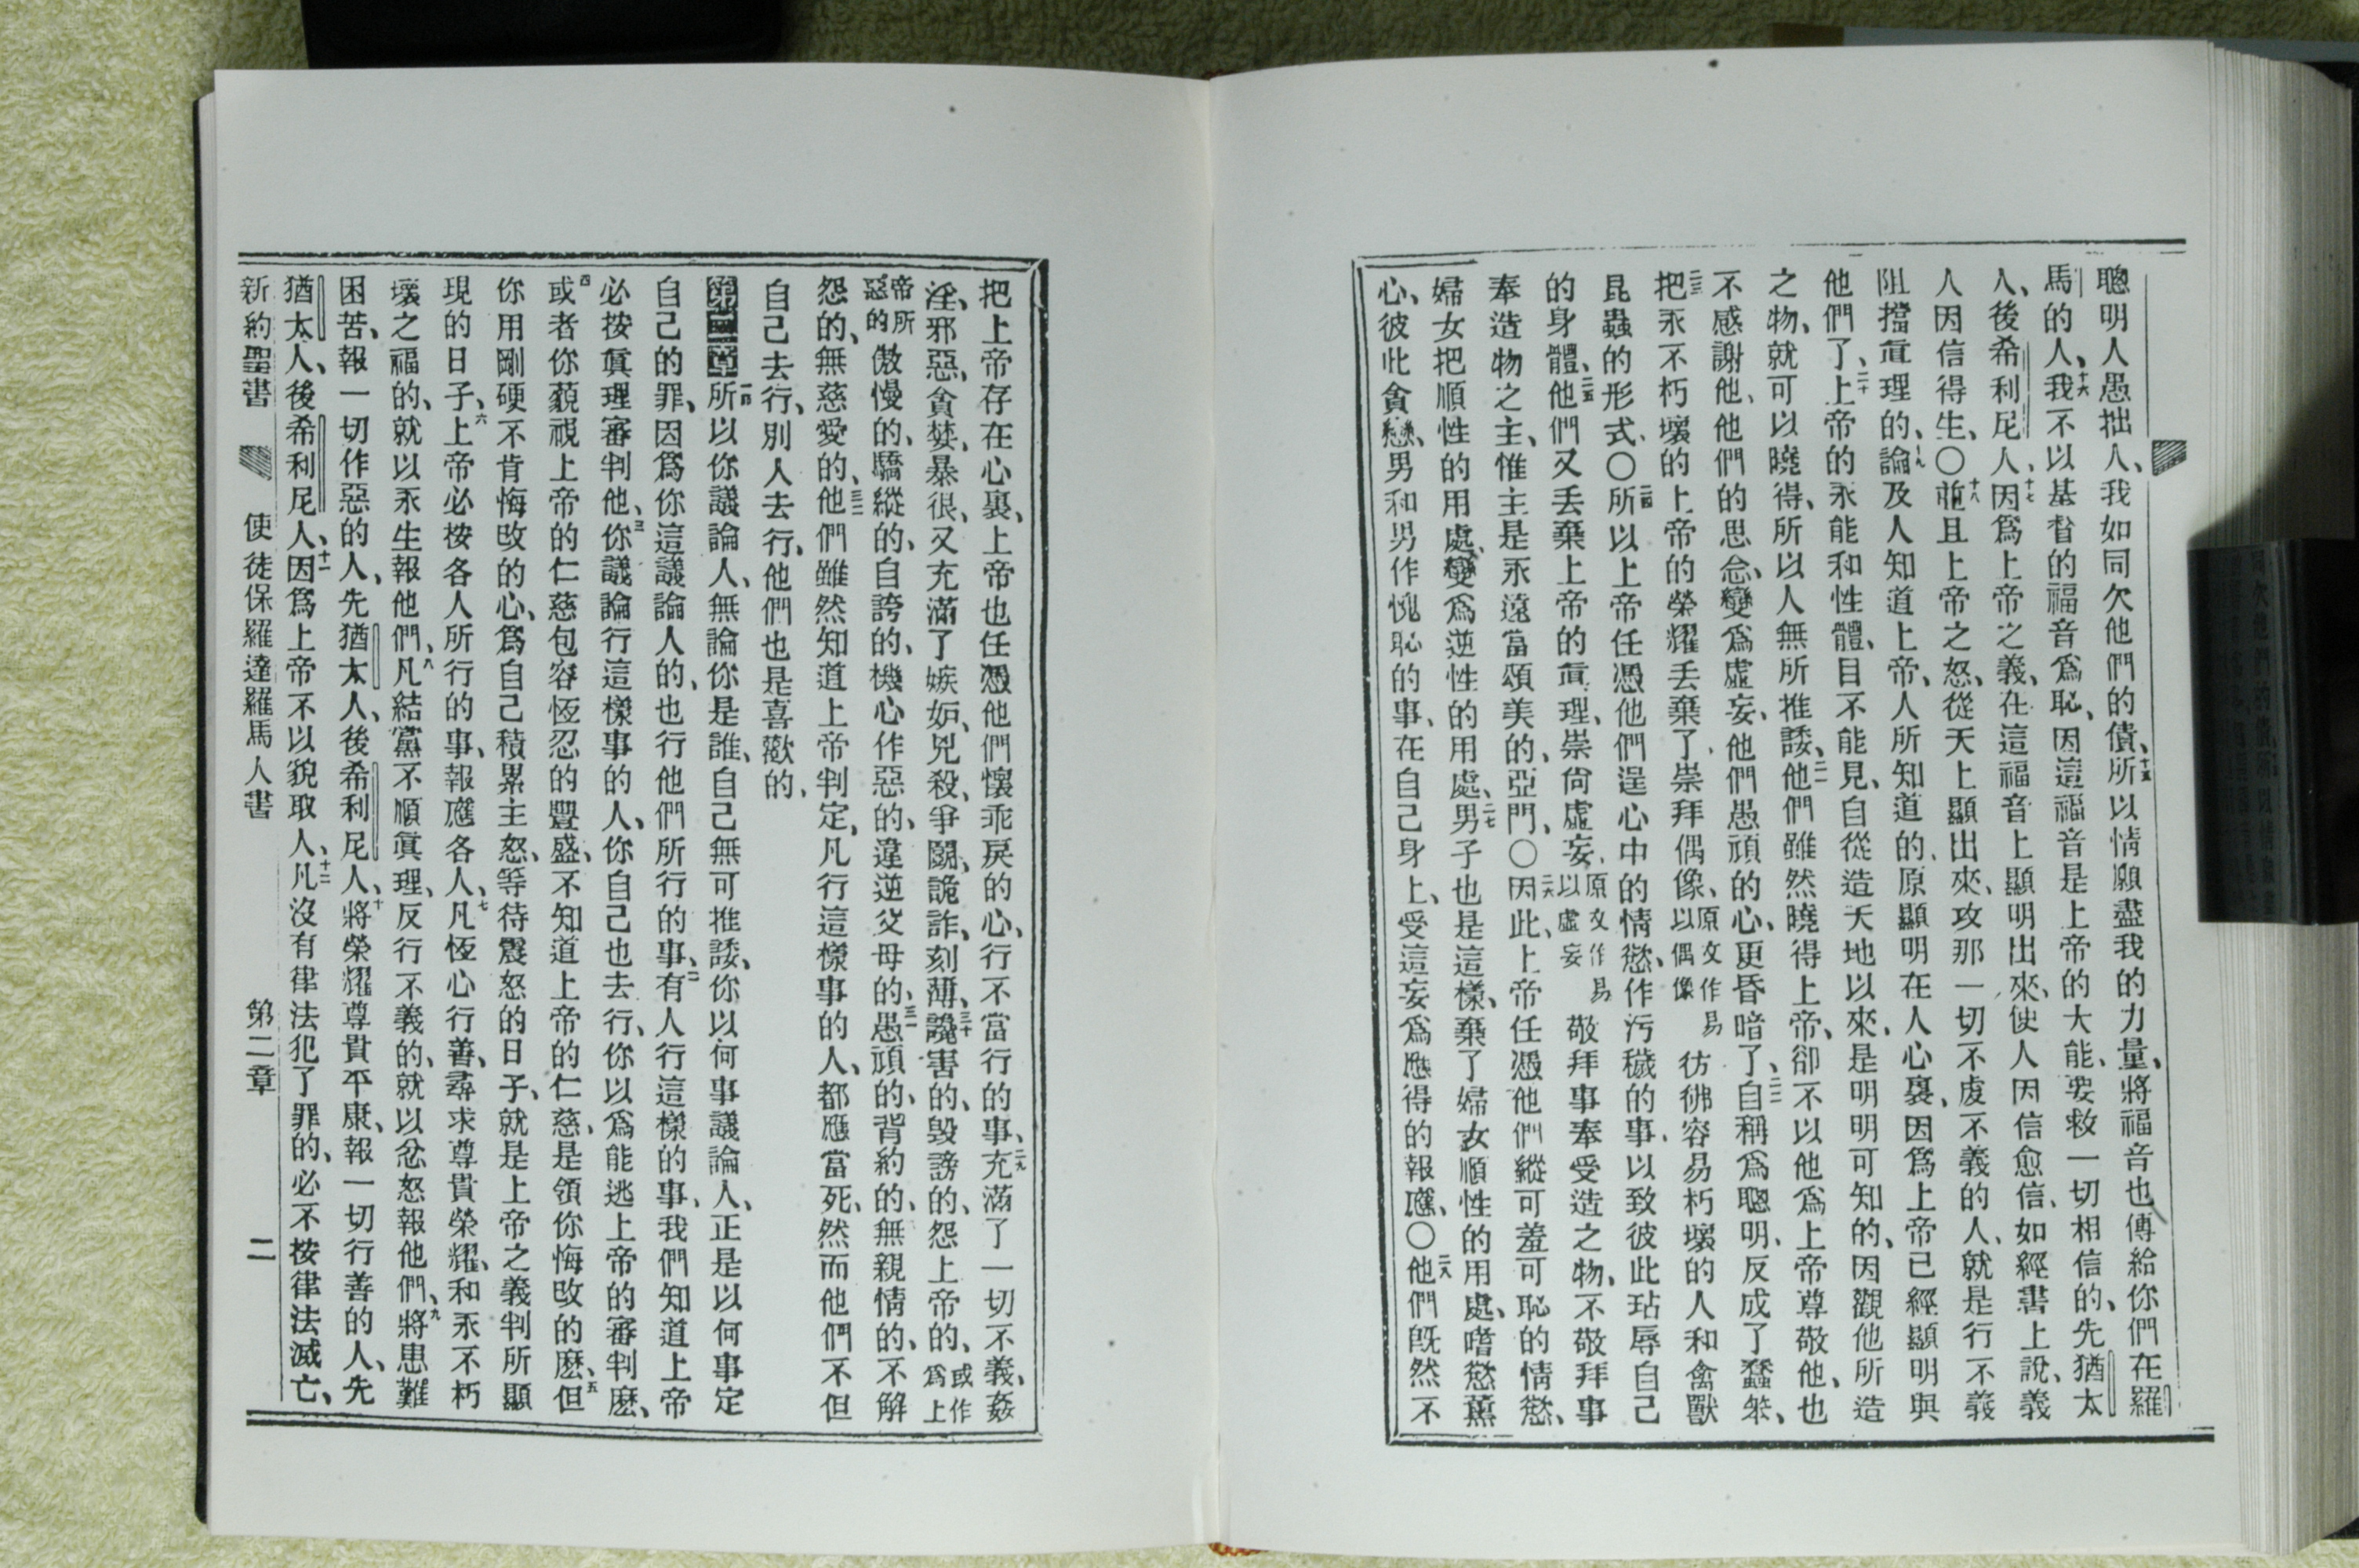 聰明人愚拙人、我如同欠他們的債、十五所以情願盡我的力量、將福音也傳給你們在羅
馬的人、十六我不以基督的福音爲恥、因這福音是上帝的大能、要救一切相信的、先猶太
人、後希利尼人、十七因爲上帝之義、在這福音上顯明出來、使人因信愈信、如經書上說、義
人因信得生、○十八並且上帝之怒、從天上顯出來、攻那一切不虔不義的人、就是行不義
阻擋眞理的、十九論及人知道上帝、人所知道的、原顯明在人心裏、因爲上帝已經顯明與
他們了、二十上帝的永能和性體、目不能見、自從造天地以來、是明明可知的、因觀他所造
之物、就可以曉得、所以人無所推諉、二一他們雖然曉得上帝、卻不以他爲上帝尊敬他、也
不感謝他、他們的思念、變爲虛妄、他們愚頑的心、更昏暗了、二二自稱爲聰明、反成了蠢笨、
二三把永不朽壞的上帝的榮耀丢棄了、崇拜偶像、原文作易以偶像彷彿容易朽壞的人和禽獸
昆蟲的形式、○二四所以上帝任憑他們逞心中的情慾、作污穢的事、以致彼此玷辱自己
的身體、二五他們又丢棄上帝的眞理、崇尙虛妄、原文作易以虛妄敬拜事奉受造之物、不敬拜事
奉造物之主、惟主是永遠當頌美的、亞門、○二六因此、上帝任憑他們縱可羞可恥的情慾、
婦女把順性的用處、變爲逆性的用處、二七男子也是這樣、棄了婦女順性的用處、嗜慾薰
心、彼此貪戀、男和男作愧恥的事、在自己身上、受這妄爲應得的報應、○二八他們旣然不
把上帝存在心裏、上帝也任憑他們懷乖戾的心、行不當行的事、二九充滿了一切不義、姦
淫、邪惡、貪婪、暴很、又充滿了嫉妒、兇殺、爭鬭、詭詐、刻薄、三十讒害的、毀謗的、怨上帝的、或作爲上
帝所惡的傲慢的、驕縱的、自誇的、機心作惡的、違逆父母的、三一愚頑的、背約的、無親情的、不解
怨的、無慈愛的、三二他們雖然知道上帝判定、凡行這樣事的人、都應當死、然而他們不但
自己去行、別人去行、他們也是喜歡的、
第二章一節所以你議論人、無論你是誰、自己無可推諉、你以何事議論人、正是以何事定
自己的罪、因爲你這議論人的、也行他們所行的事、二有人行這樣的事、我們知道上帝
必按眞理審判他、三你議論行這樣事的人、你自己也去行、你以爲能逃上帝的審判麽、
四或者你藐視上帝的仁慈包容恆忍的豐盛、不知道上帝的仁慈、是領你悔改的麽、五但
你用剛硬不肯悔改的心、爲自己積累主怒、等待震怒的日子、就是上帝之義判所顯
現的日子、六上帝必按各人所行的事、報應各人、七凡恆心行善、尋求尊貴榮耀、和永不朽
壞之福的、就以永生報他們、八凡結黨不順眞理、反行不義的、就以忿怒報他們、九將患難
困苦、報一切作惡的人、先猶太人、後希利尼人、十將榮耀尊貴平康、報一切行善的人、先
猶太人、後希利尼人、十一因爲上帝不以貌取人、十二凡沒有律法犯了罪的、必不按律法滅亡、
新約聖書 使徒保羅達羅馬人書 第二章 二